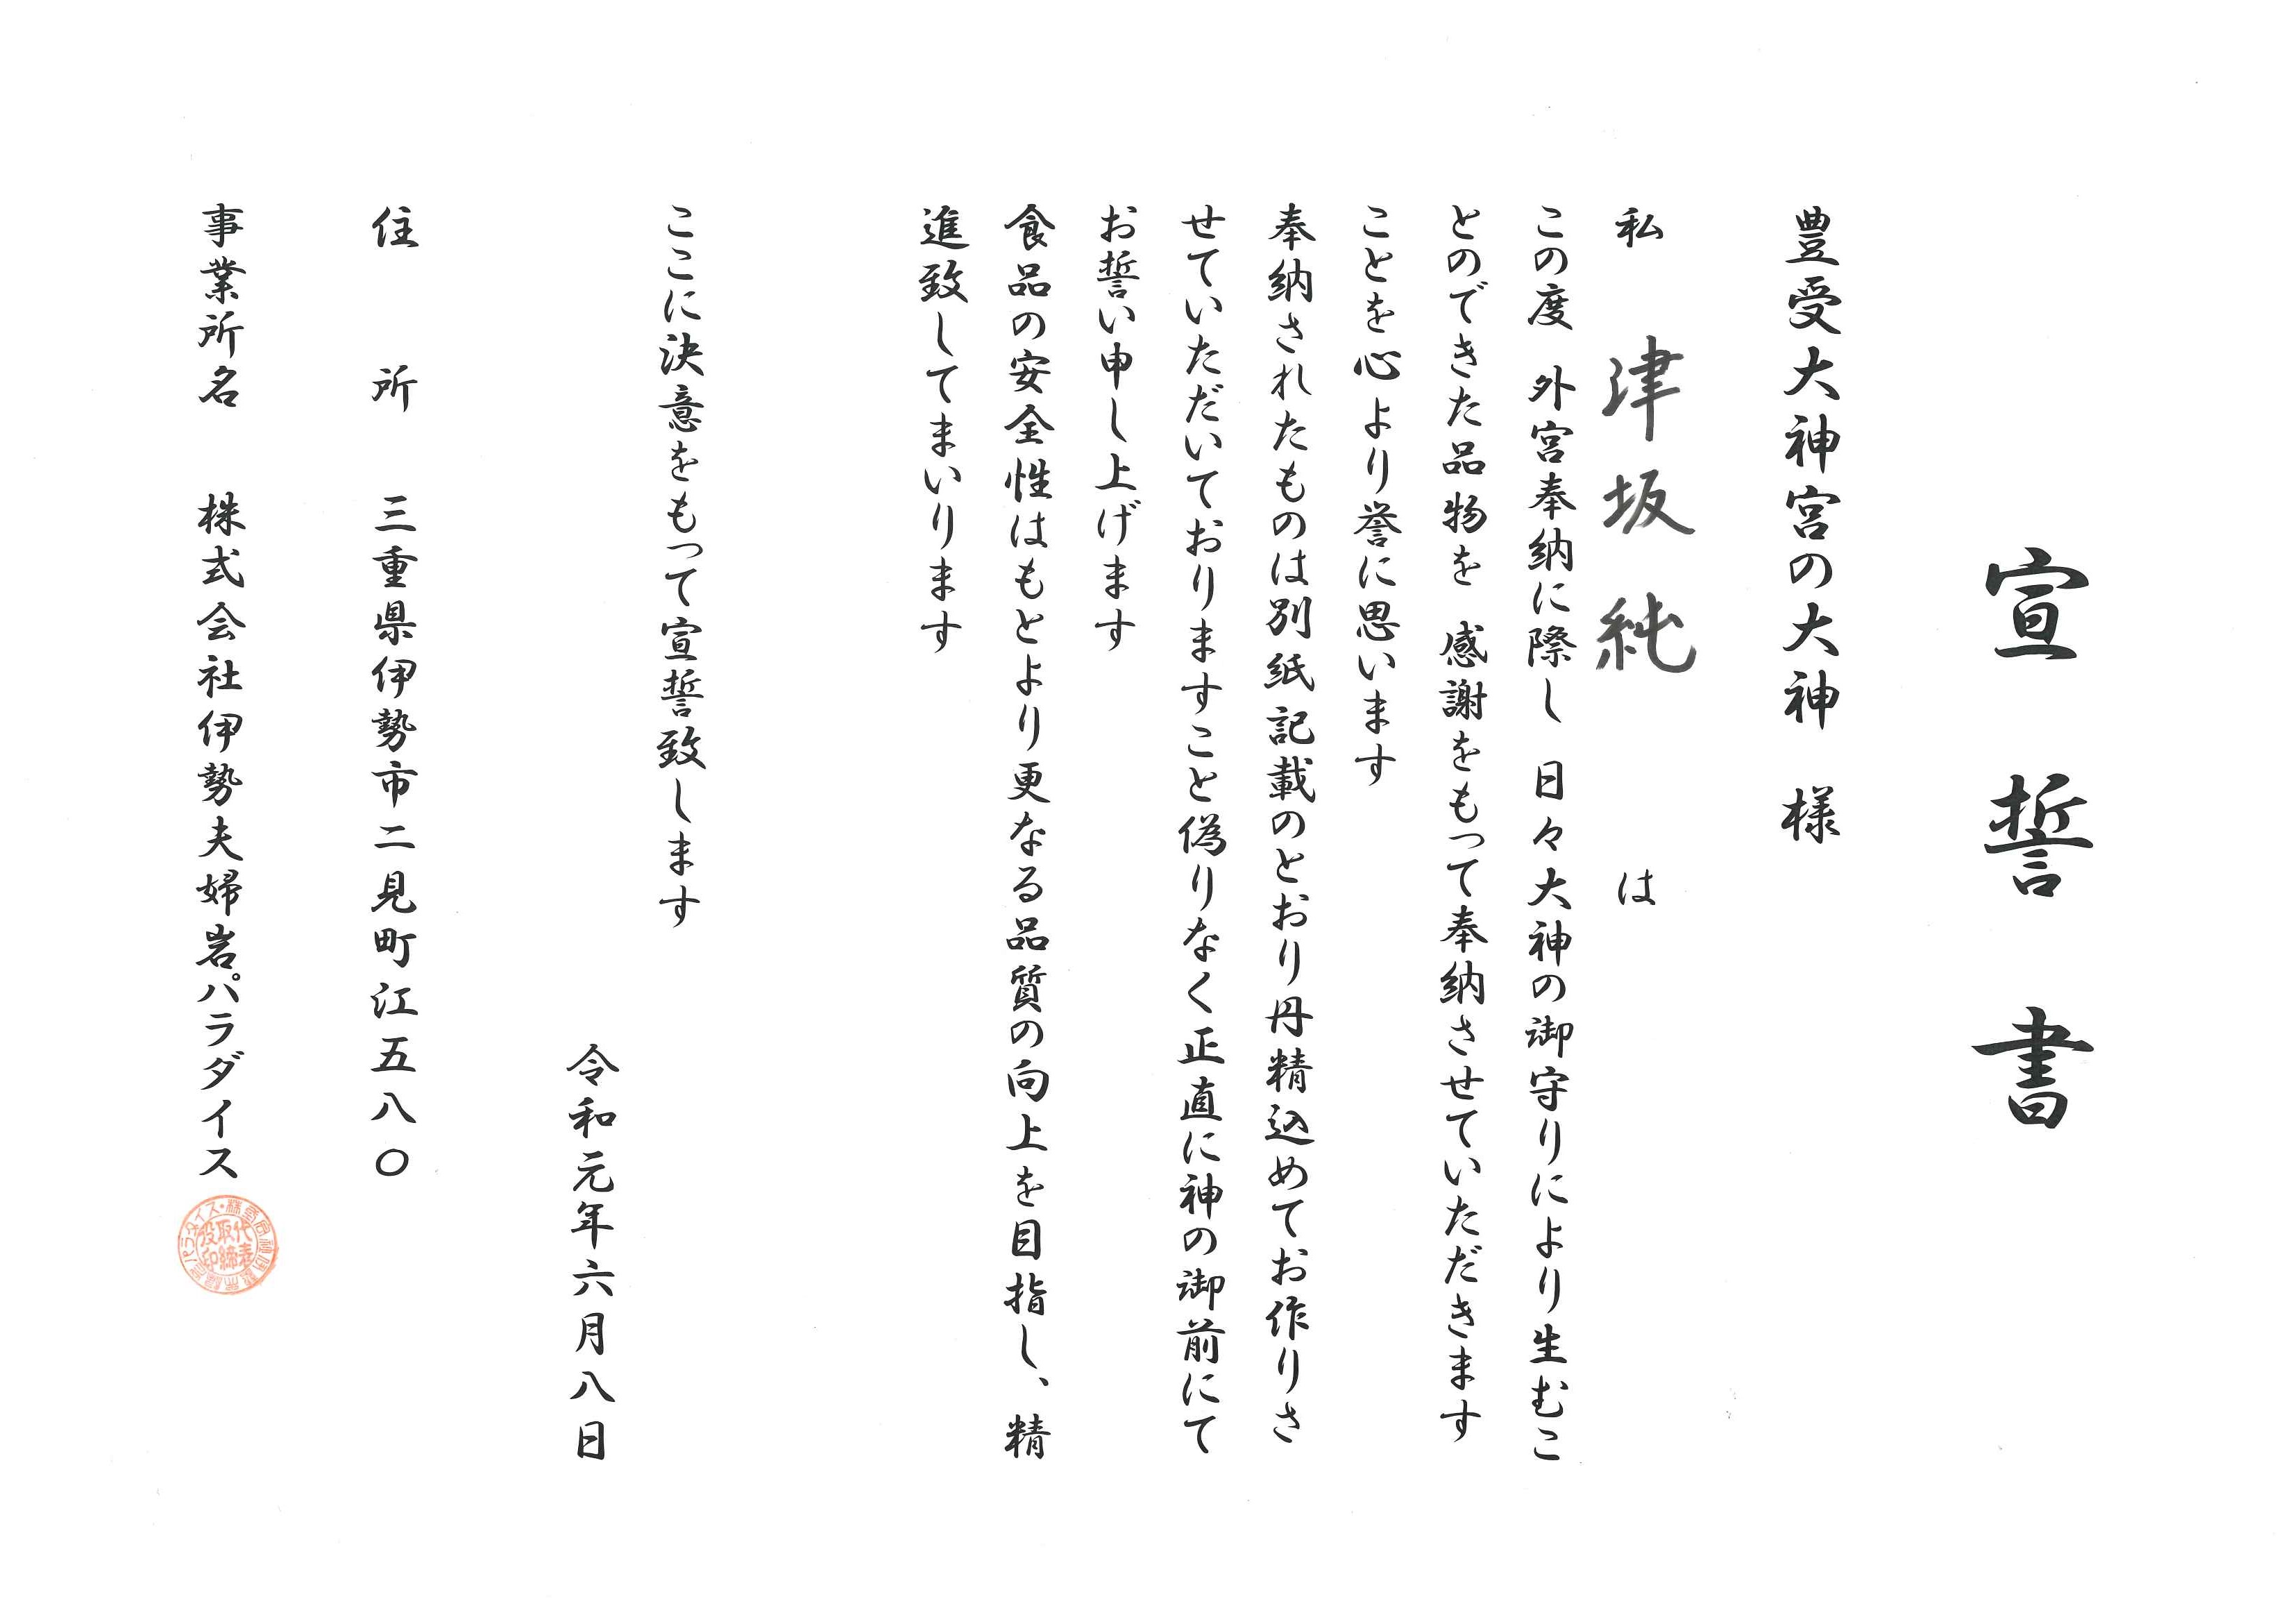 宣誓書
豊受大神宮の大神　様
私　津坂純　は
この度　外宮奉納に際し　日々大神の御守りにより生むこ
とのできた品物を　感謝をもって奉納させていただきます
ことを心より誉に思います
奉納されたものは別紙記載のとおり丹精込めてお作りさ
せていただいておりますこと偽りなく正直に神の御前にて
お誓い申し上げます
食品の安全性はもとより更なる品質の向上を目指し、精
進致してまいります
ここに決意をもって宣誓致します
令和元年六月八日
住所　三重県伊勢市二見町江五八〇
事業所名　株式会社伊勢夫婦岩パラダイス
代表
取締
役印